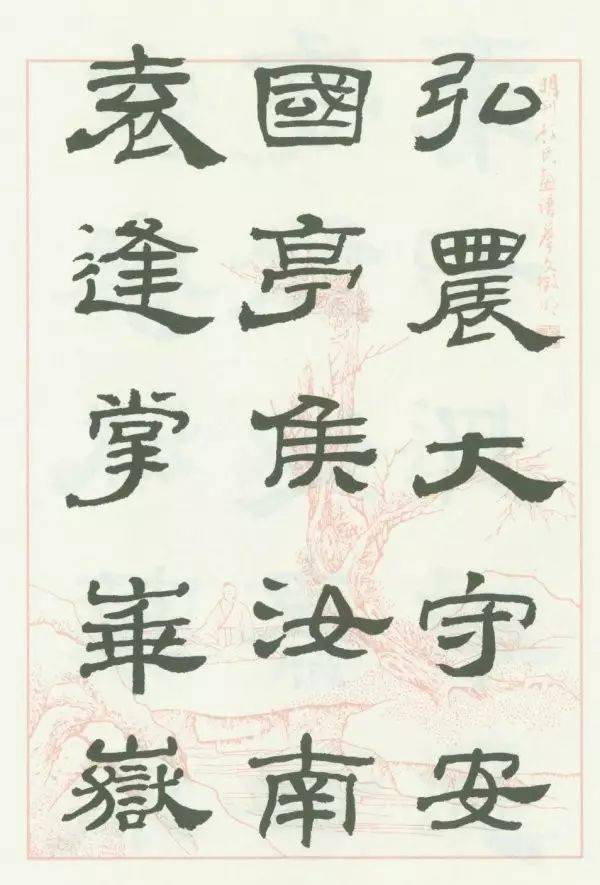 弘農大守安
國亭侯汝南
袁逢掌崋嶽